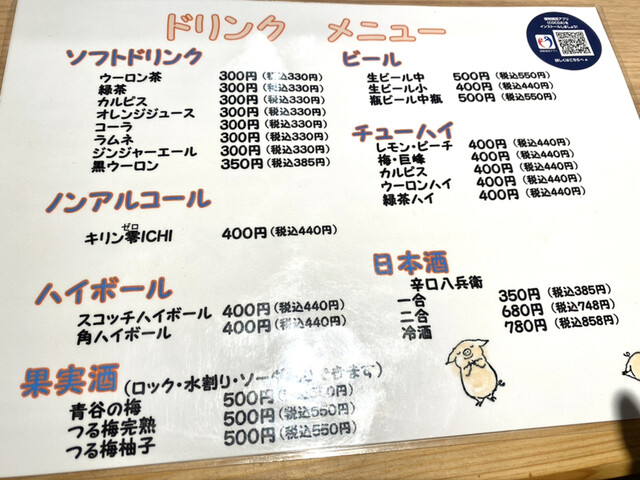 ドリンク メニュー
ソフトドリンク
ウーロン茶 300円(税込330円)
緑茶 300円(税込330円)
カルピス 300円(税込330円)
オレンジジュース 300円(税込330円)
コーラ 300円(税込330円)
ラムネ 300円(税込330円)
ジンジャーエール 300円(税込330円)
黒ウーロン 350円(税込385円)
ノンアルコール
キリン零ICHI 400円(税込440円)
ゼロ
ハイボール
スコッチハイボール 400円(税込440円)
角ハイボール 400円(税込440円)
果実酒(ロック・水割り・ソーダ
青谷の梅 500円
つる梅完熟 500円(税込550円)
つる梅柚子 500円(税込550円)
ビール
生ビール中 500円(税込550円)
生ビール小 400円(税込440円)
瓶ビール中瓶 500円(税込550円)
チューハイ
レモン・ピーチ 400円(税込440円)
梅・巨峰 400円(税込440円)
カルピス 400円(税込440円)
ウーロンハイ 400円(税込440円)
緑茶ハイ 400円(税込440円)
日本酒
辛口八兵衛
一合 350円(税込385円)
二合 680円(税込748円)
冷酒 780円(税込858円)
接触確認アプリ
(COCOA)を
インストールしましょう!
詳しくはこちらへ